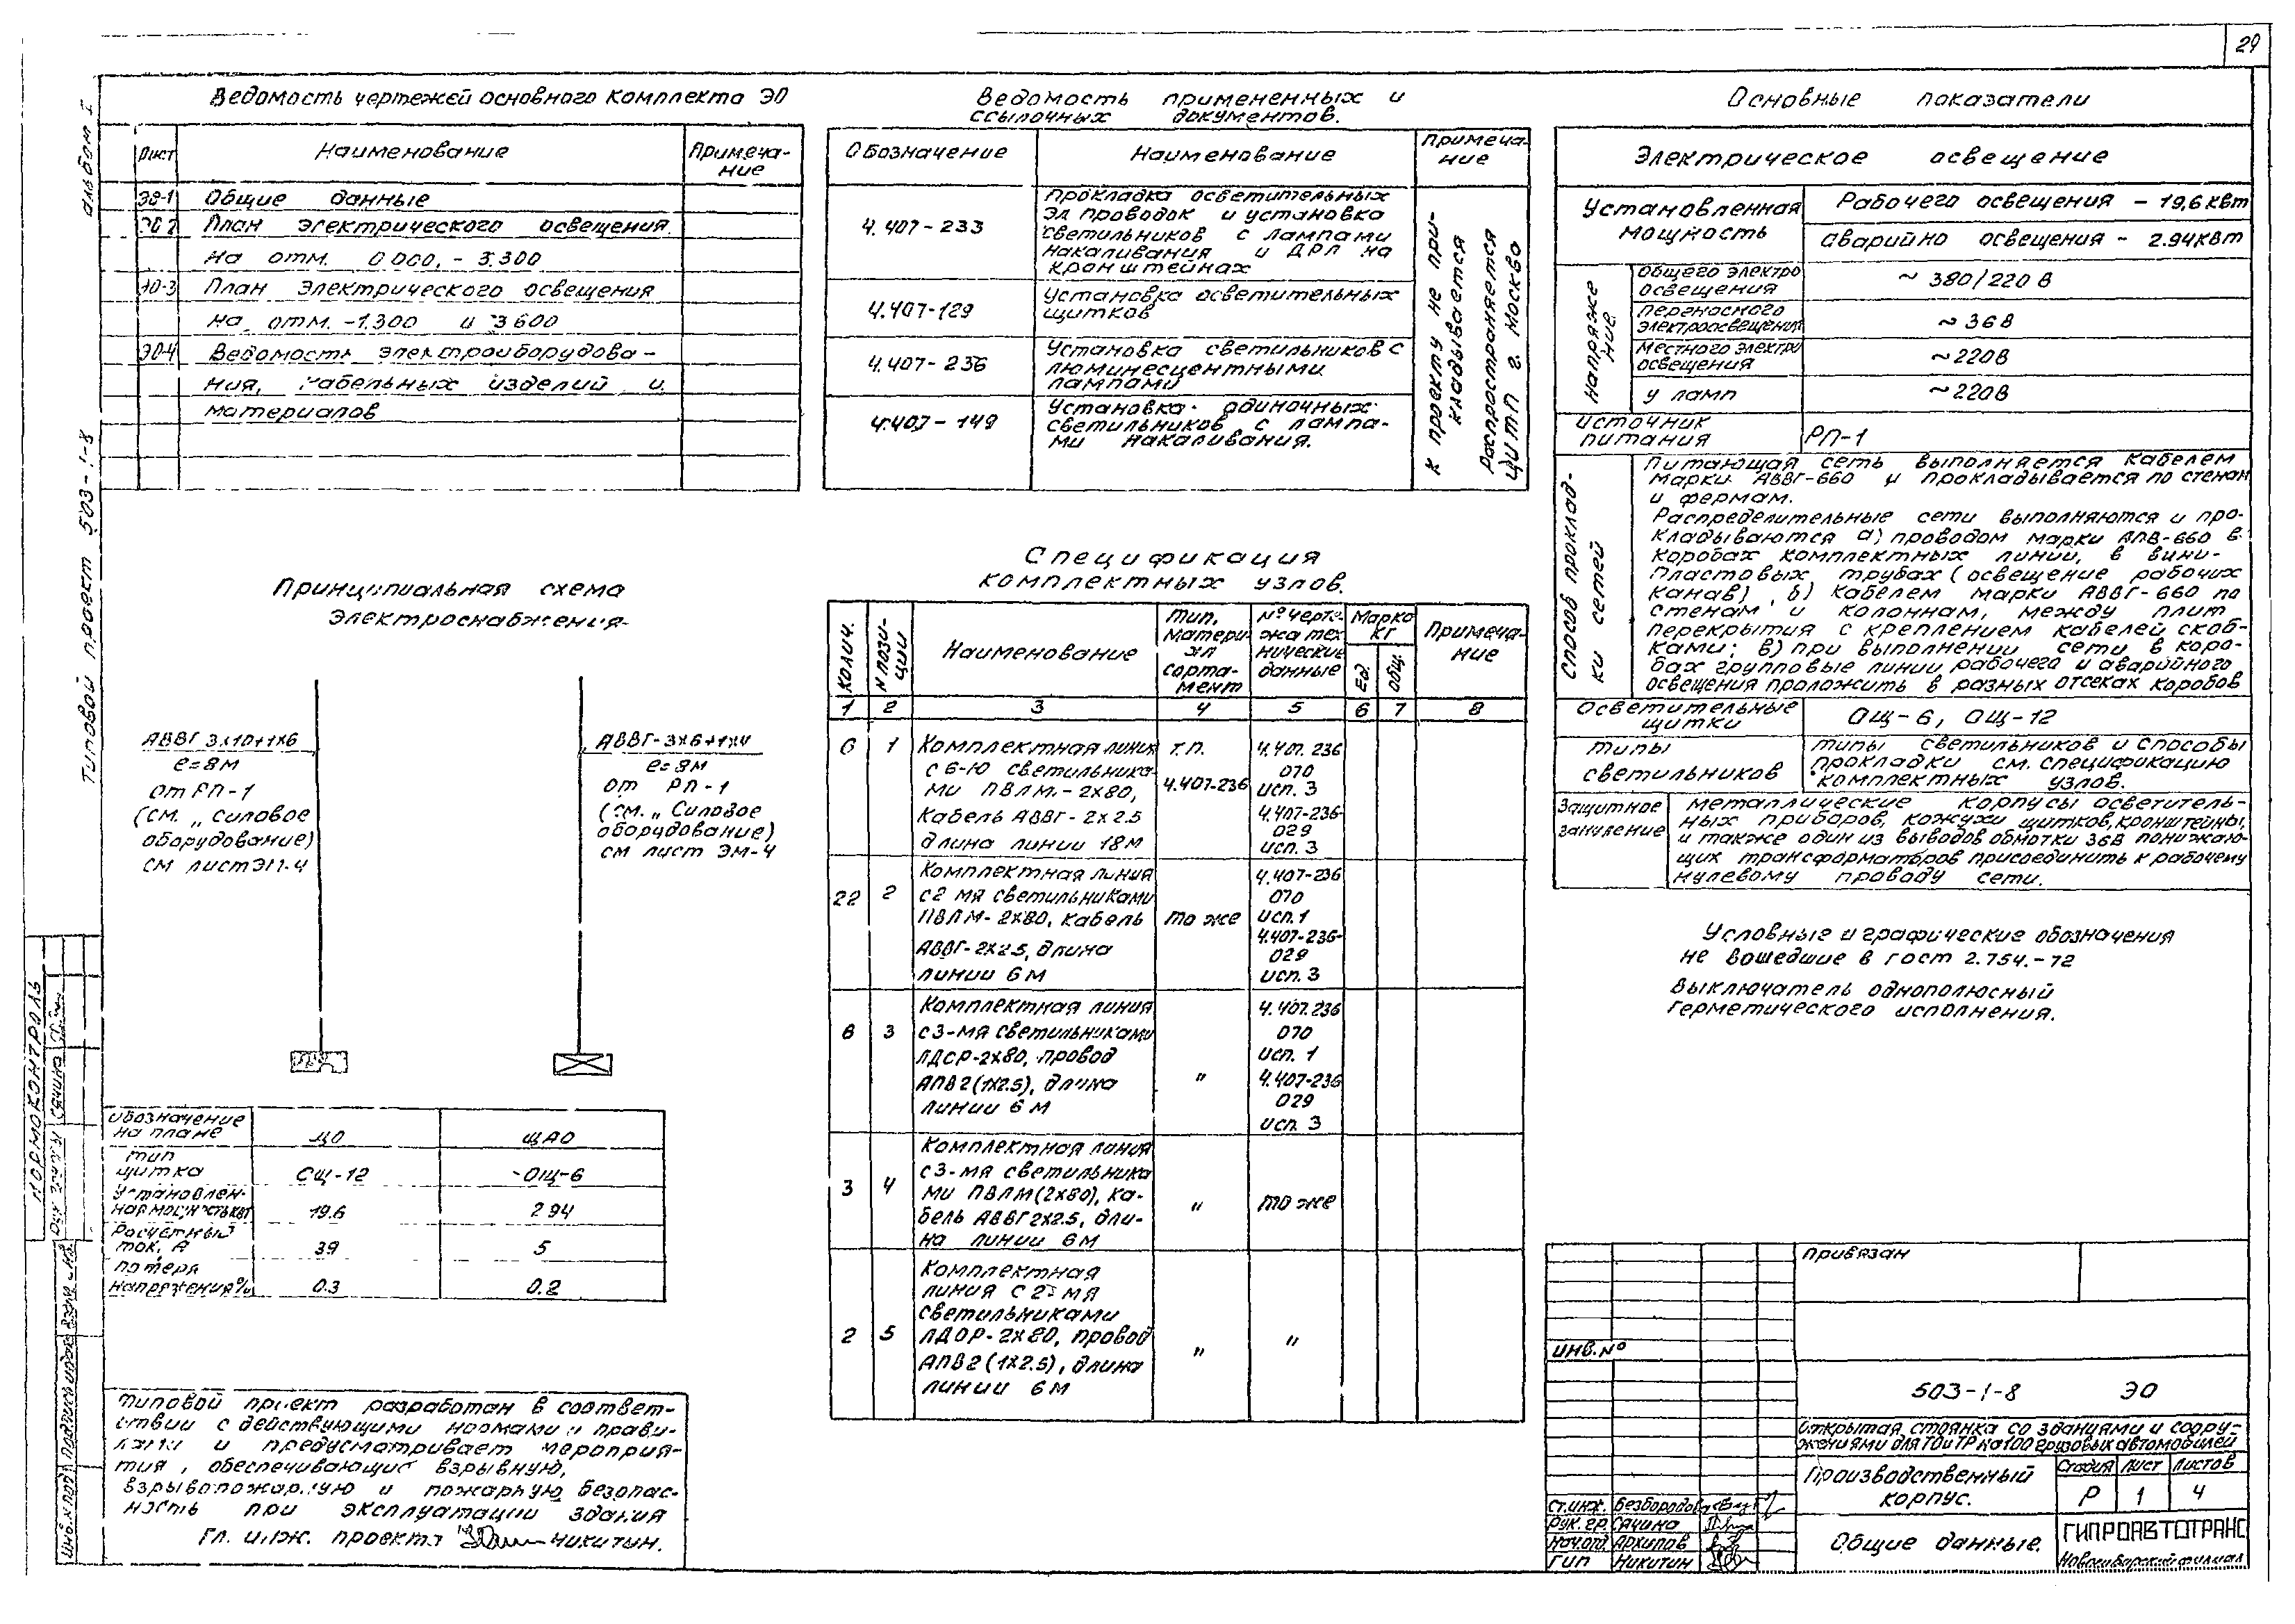 29
Альбом I
Типовой проект 503-1-8
Ведомость чертежей основного комплекта ЭО
Лист
Наименование
Примеча-
ние
ЭО-1
Общие данные
ЭО-2
План электрического освещения
на отм. 0.000, - 3.300
ЭО-3
План электрического освещения
на отм. -1.300 и 3600
ЭО-4
Ведомость электрооборудова-
ния, кабельных изделий и
материалов
Ведомость примененных и
ссылочных документов.
Обозначение
Наименование
Примеча-
ние
4.407-233
Прокладка осветительных
эл проводок и установка
светильников с лампами
накаливания и ДРЛ на
кронштейнах
4.407-129
Установка осветительных
щитков
4.407-236
Установка светильников с
люминесцентными
лампами
4.407-149
Установка одиночных
светильников с лампа-
ми накаливания.
К проекту не при-
кладывается
Распространяется
ЦИТП г. Москва
Основные показатели
Электрическое освещение
Установленная
мощность
Рабочего освещения - 19,6 кВт
Аварийно освещения - 2.94кВт
Напряже
ние
Общего электро
освещения
~ 380/220 В
Переносного
электроосвещения
~ 36В
Местного электро
освещения
~220В
У ламп
~220В
Источник
питания
РП-1
Способ проклад-
ки сетей
Питающая сеть выполняется кабелем
марки АВВГ-660 и прокладывается по стенам
и фермам.
Распределительные сети выполняются и про-
кладываются а) проводом марки АПВ-660 в
коробах комплектных линий, в вини-
пластовых трубах (освещение рабочих
канав), б) кабелем марки АВВГ-660 по
стенам и колоннам, между плит
перекрытия с креплением кабелей скоб-
ками; в) при выполнении сети в коро-
бах групповые линии рабочего и аварийного
освещения проложить в разных отсеках коробов
Осветительные
щитки
ОЩ-6, ОЩ-12
Типы
светильников
Типы светильников и способы
прокладки см. спецификацию
комплектных узлов.
Защитное
зануление
Металлические корпусы осветитель-
ных приборов, кожухи щитков, кронштейны,
и также один из выводов обмотки 36В понижаю-
щих трансформаторов присоединить к рабочему
нулевому проводу сети.
Условные и графические обозначения
не вошедшие в гост 2.754.-72
Выключатель однополюсный
герметического исполнения.
Принципиальная схема
электроснабжения.
АВВГ 3х10+1х6
ℓ=8м
от РП-1
(см. „Силовое
оборудование)
см лист ЭМ-4
АВВГ-3х6+1х4
ℓ=9м
от РП-1
(см. „Силовое
оборудование)
см лист ЭМ-4
Обозначение
на плане
ЩО
ЩАО
Тип
щитка
ОЩ-12
ОЩ-6
Установлен-
ная мощность квт
19.6
2 94
Расчетный
ток, А
39
5
Потеря
напряжения%
0.3
0.2
Спецификация
комплектных узлов.
Колич.
N пози-
ции
Наименование
Тип,
матери
ал
сорта-
мент
№ черте-
жа тех
нические
данные
Марка
кг
Ед.
Общ.
Примеча-
ние
1 2 3 4 5 6 7 8
6 1
Комплектная линия
с 6-ю светильника-
ми ПВЛМ.-2х80,
кабель АВВГ-2х2.5
длина линии 18м
т.п.
4.407-236
4.407.236
070
исп. 3
4.407-236-
029
исп. 3
22 2
Комплектная линия
с2 мя светильниками
ПВЛМ-2х80, кабель
АВВГ-2х2.5, длина
линии 6м
то же
4.407-236
070
исп.1
4.407-236-
029
исп. 3
6 3
Комплектная линия
с3-мя светильниками
ЛДСР-2х80, провод
АПВ2(1х2.5), длина
линии 6м
"
4.407.236
070
исп. 1
4.407-236
029
исп. 3
3 4
Комплектная линия
с3-мя светильника
ми ПВЛМ(2х80), ка-
бель АВВГ2х2.5, дли-
на линии 6м
"
то же
2 5
Комплектная
линия с 2 мя
светильниками
ЛДОР-2х80, провод
АПВ2(1х2.5), длина
линии 6м
"
"
Типовой проект разработан в соответ-
ствии с действующими нормами и прави-
лами и предусматривает мероприя-
тия, обеспечивающие взрывную,
взрывопожарную и пожарную безопас-
ность при эксплуатации здания
Гл. инж. проекта Никитин.
Нормоконтроль
Сячина
Инв.N подл
Подпись и дата
Привязан
Инв.№
503-1-8 ЭО
Открытая стоянка со зданиями и соору-
жениями для ТО и ТР на 100 грузовых автомобилей
Производственный
корпус.
Стадия
Лист
Листов
Р 1 4
Ст.инж. Безбородов
Рук.гр. Сячина
Нач.отд. Архипов
ГИП Никитин
Общие данные.
ГИПРОАВТОТРАНС
Новосибирский филиал